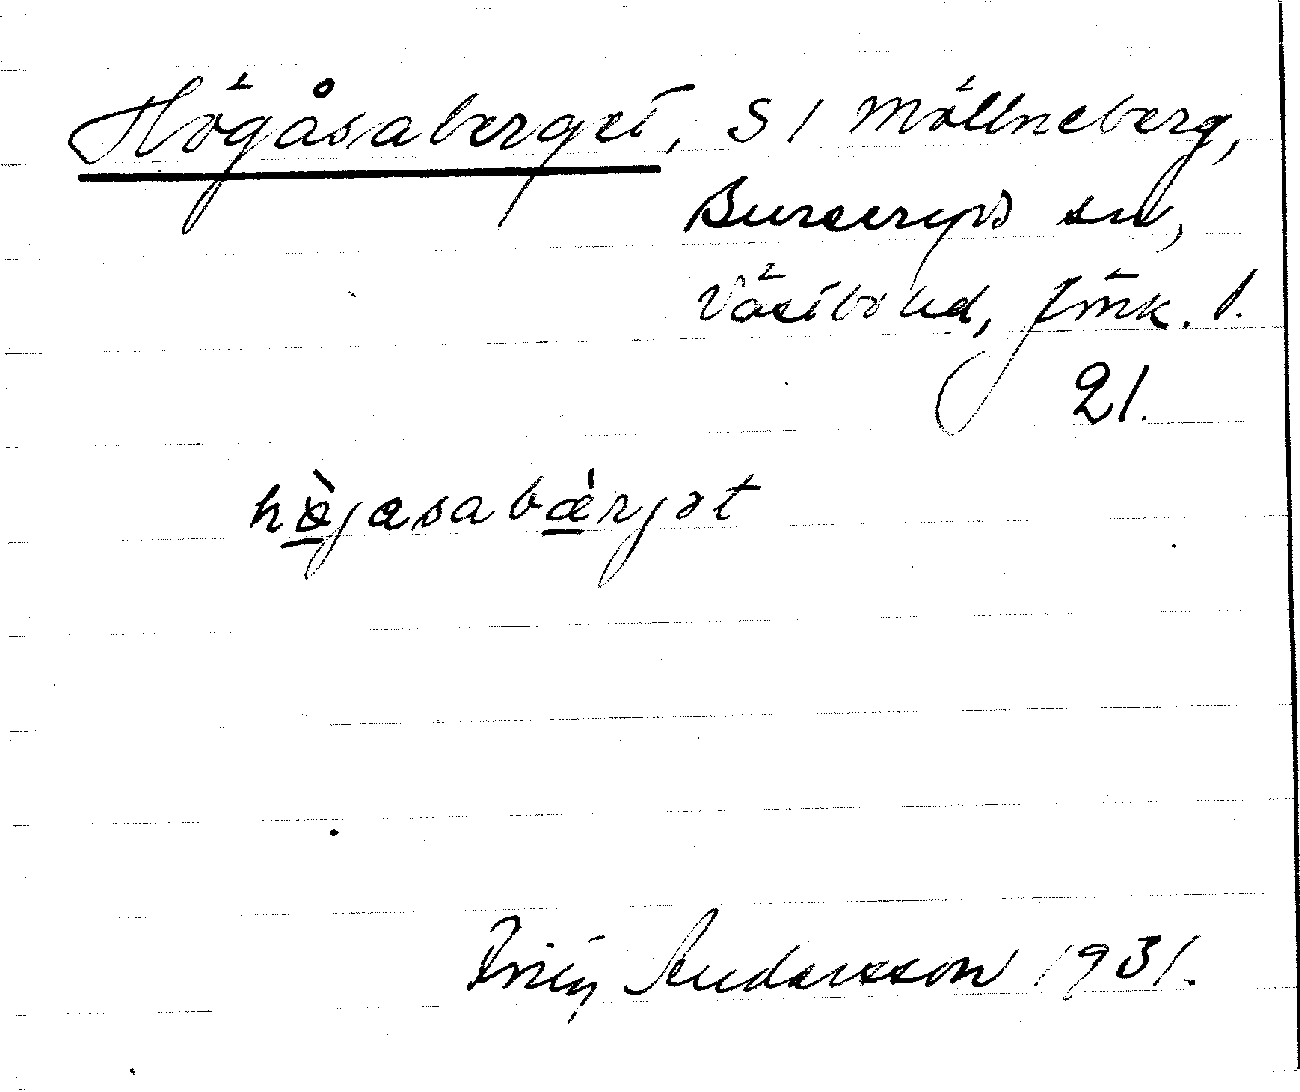 Högåsaberget, S / Möllneberg,
Burseryds sn,
Västbo hd, Jönk. l.
21.
hø̀jasabæ̀rjət
Fritz Andersson 1931.